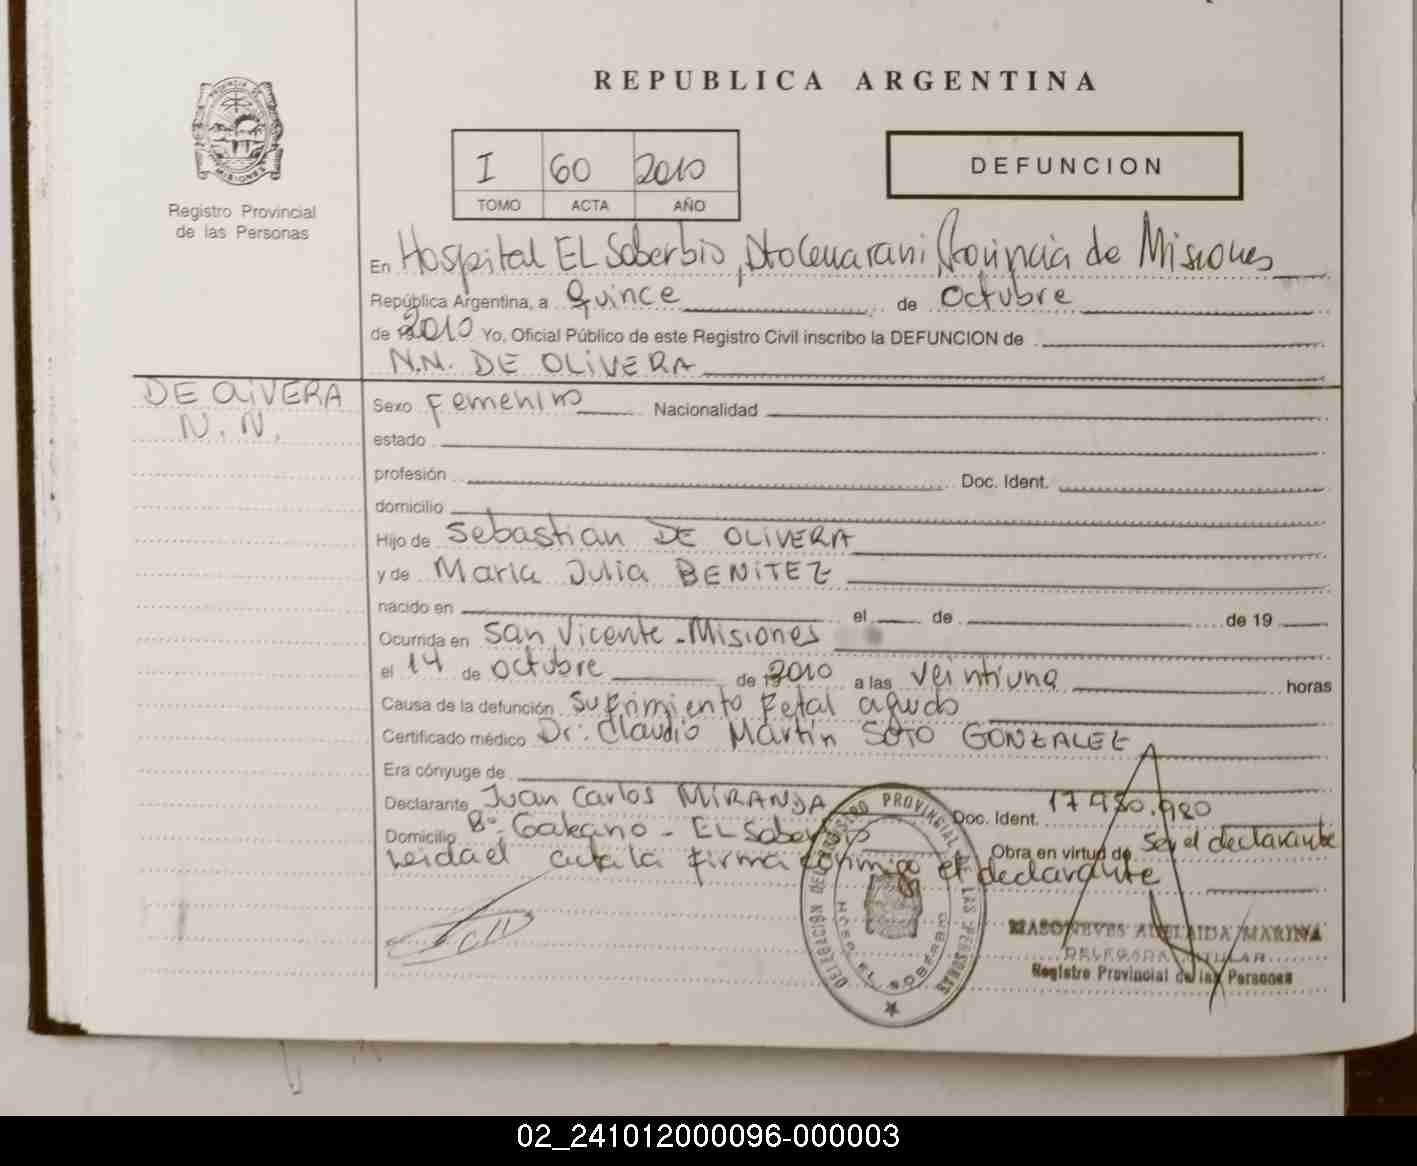 REPUBLICA ARGENTINA
PROVINCIA DE
MISIONES
Registro Provincial
de las Personas
I 60 2010
TOMO ACTA AÑO
DEFUNCION
En Hospital EL Soberbio, Dto Guarani Provincia de Misiones
República Argentina, a Quince de Octubre
de 2010 Yo, Oficial Público de este Registro Civil inscribo la DEFUNCION de
N.N. DE OLIVERA
DE OLIVERA
N.N.
Sexo Femenino Nacionalidad
estado
profesión Doc. Ident.
domicilio
Hijo de Sebastian DE OLIVERA
y de Maria Julia BENITEZ
nacido en el de de 19
Ocurrida en San Vicente - Misiones
el 14 de octubre de 2010 a las veintiuna horas
Causa de la defunción Sufrimiento Fetal agudo
Certificado médico Dr. Claudio Martin SOTO GONZALEZ
Era cónyuge de
Declarante Juan Carlos MIRANDA Doc. Ident. 17.980.980
Domicilio Bº Galeano - EL Soberbio Obra en virtud de Ser el declarante
Leida el acta la firma conmigo el declarante
DELEGACION DEL REGISTRO PROVINCIAL DE LAS PERSONAS
HOSP. EL SOBERBIO
MASONEVES ADELAIDA MARINA
DELEGADA TITULAR
Registro Provincial de las Personas
02_241012000096-000003